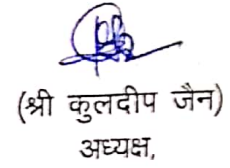 (श्री कुलदीप जैन)
अध्यक्ष,